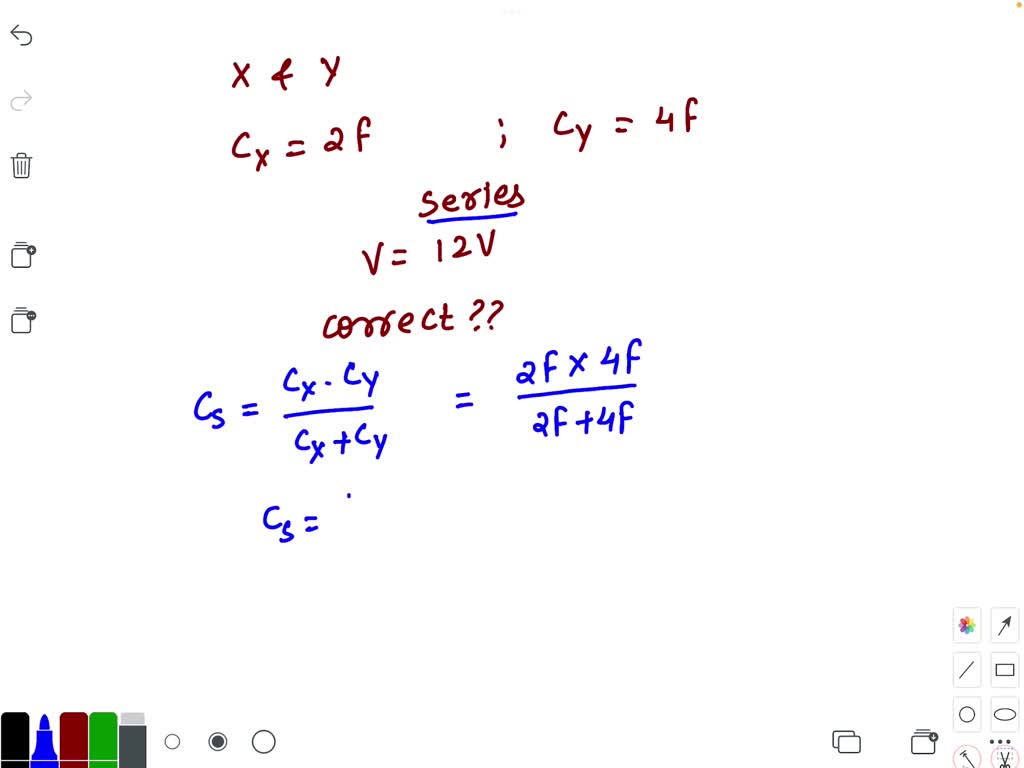 X & Y
Cx = 2F ; Cy = 4F
Series
V = 12V
correct ??
Cs = Cx . Cy / Cx + Cy = 2F x 4F / 2F + 4F
Cs =